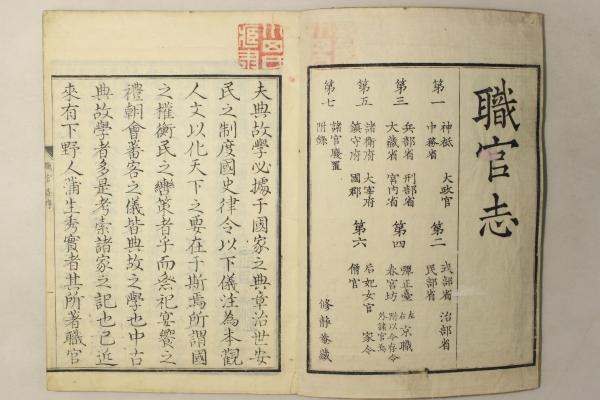 職官志
第一 神祇 大政官
中務省
第二 式部省 治部省
民部省
第三 兵部省 刑部省
大藏省 宮內省
第四 彈正臺 左右京職
春宮坊 附以今存令外諸官焉
第五 諸衛府 大宰府
鎮守府 國郡
第六 后妃女官 家令
僧官
第七 諸官廢置
附錄
修靜菴藏
夫典故學必據于國家之典章治世安
民之制度國史律令以下儀注為本觀
人文以化天下之要在于斯焉所謂國
之權衡民之轡策者乎而祭祀宴饗之
禮朝會蕃客之儀皆典故之學也中古
典故學者多是考索諸家之記也已近
來有下野人蒲生秀實者其所著職官